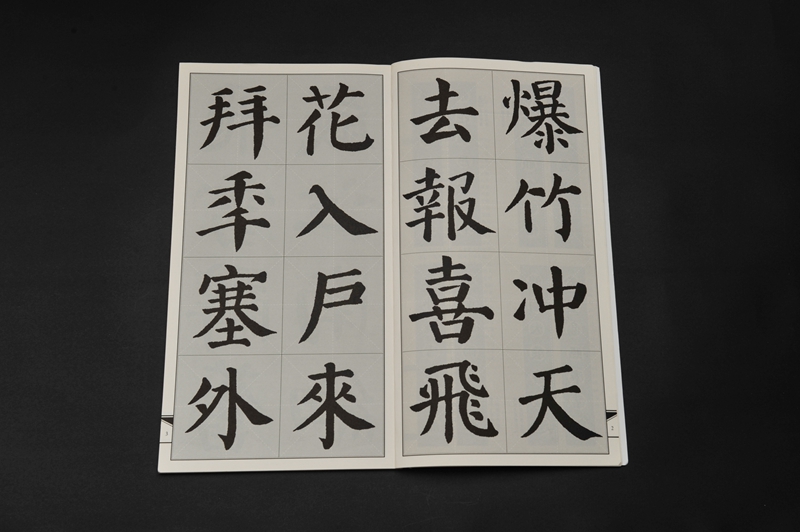 爆竹冲天
去報喜飛
花入戶來
拜年塞外
2